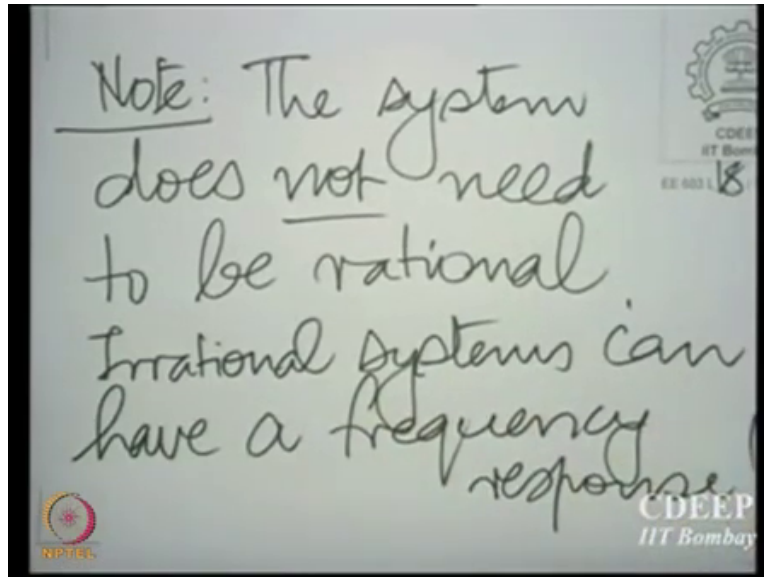 Note: The system
does not need
to be rational.
Irrational systems can
have a frequency
response
CDEEP
IIT Bombay
EE 603 L 18 /
NPTEL
CDEEP
IIT Bombay